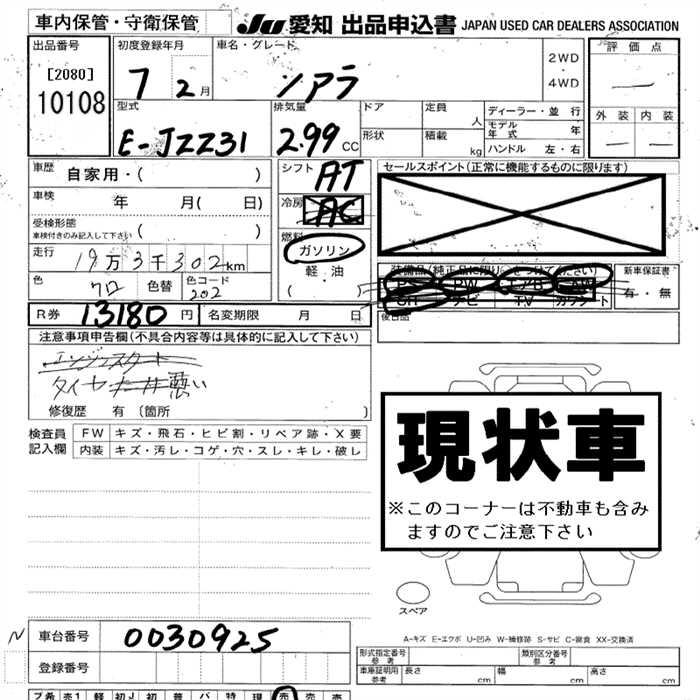 車内保管・守衛保管
JU 愛知 出品申込書 JAPAN USED CAR DEALERS ASSOCIATION
出品番号
[2080]
10108
初度登録年月
7 2月
車名・グレード
ソアラ
2WD
・
4WD
評価点
外装 内装
型式
E-JZZ31
排気量
2.99 CC
ドア
形状
定員 人
積載 kg
ディーラー・並行
モデル年式 年
ハンドル 左・右
車歴 自家用・( )
車検 年 月( 日)
受検形態
車検付きのみ記入して下さい ( )
走行 19万3千302km
色 クロ 色替 色コード 202
シフト AT
冷房 AC
燃料
ガソリン
軽・油
( )
セールスポイント(正常に機能するものに限ります)
装備品(純正品に限り○をつけてください)
PS PW エアB AW
SR ナビ TV カワシート
新車保証書
有・無
後日品
R券 13180円 名変期限 月 日
注意事項申告欄(不具合内容等は具体的に記入して下さい)
修復歴 有 〔箇所 〕
検査員
記入欄
FW キズ・飛石・ヒビ割・リペア跡・X要
内装 キズ・汚レ・コゲ・穴・スレ・キレ・破レ
現状車
※このコーナーは不動車も含み
ますのでご注意下さい
スペア
A-キズ E-エクボ U-凹み W-補修跡 S-サビ C-腐食 XX-交換済
N
車台番号 0030925
登録番号
形式指定番号
参考
類別区分番号
参考
車庫証明用
参考
長さ cm 幅 cm 高さ cm